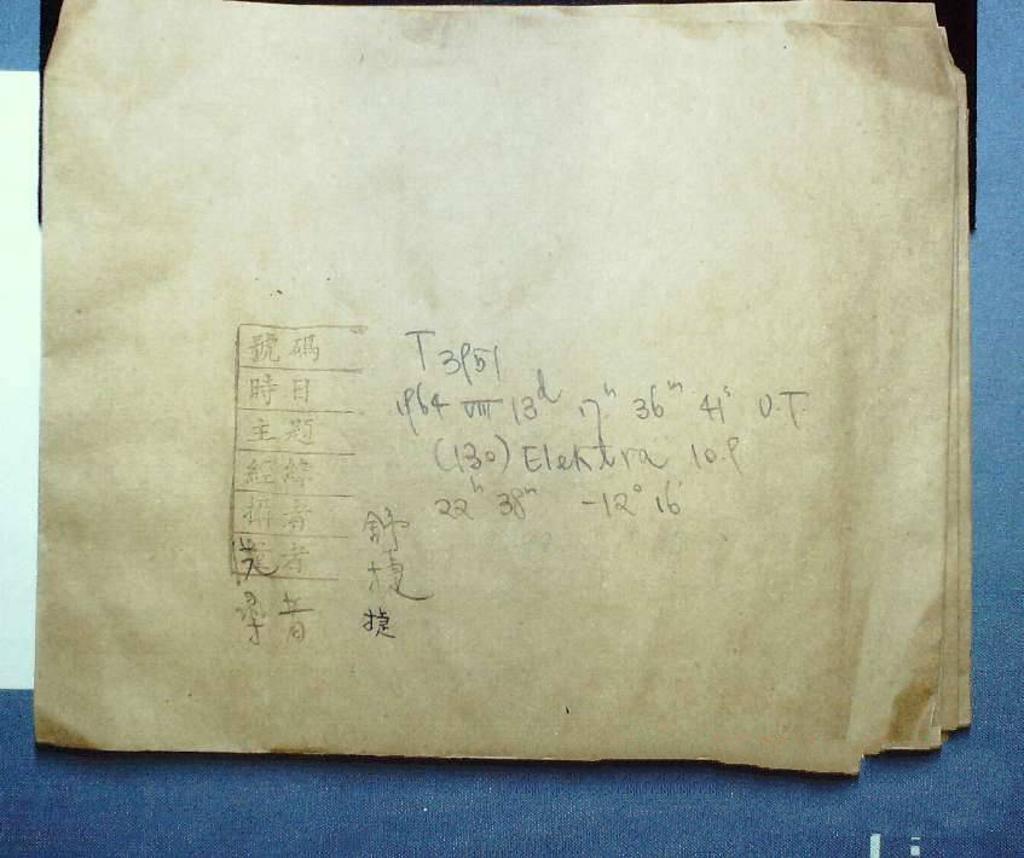 號碼 T 3951
時日 1964 VIII 13d 17h 36m 41s U.T.
主題 (130) Elektra 10.9
經緯 22h 38m -12° 16'
攝者 舒
者 捷
者 捷